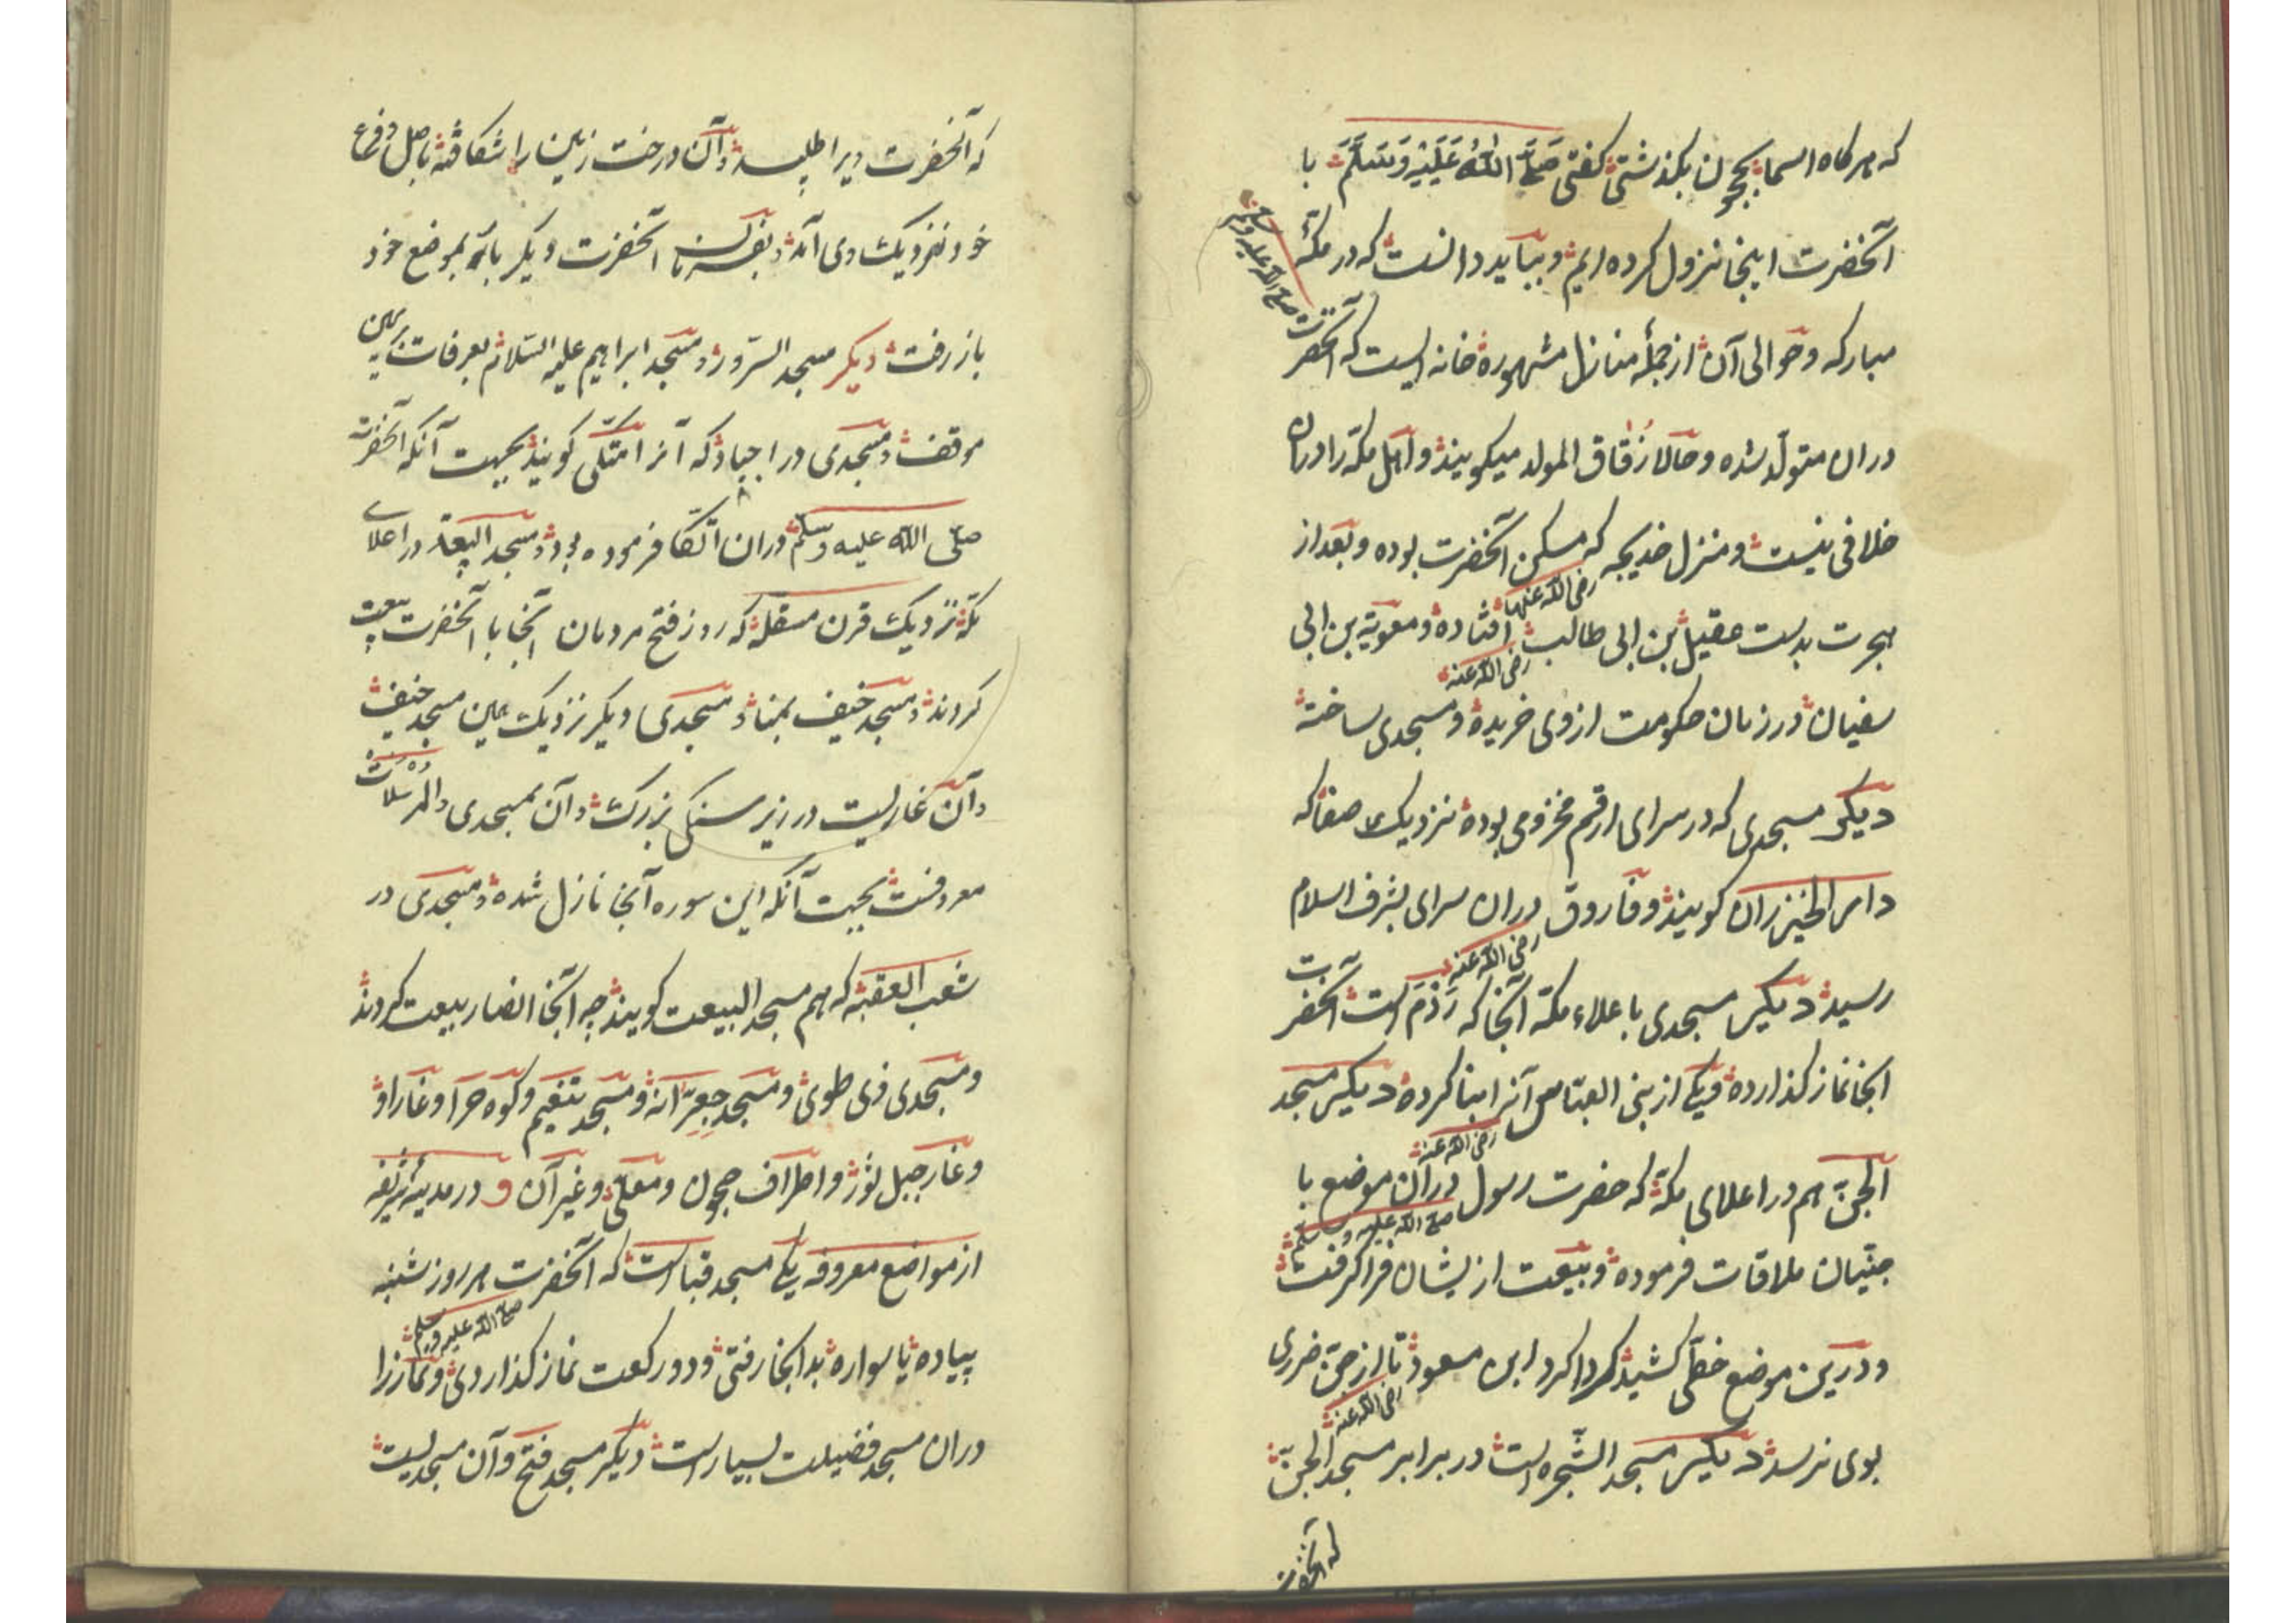 که هرگاه اسما بحجون بگذشتی گفتی صَلَّی اللّٰهُ عَلَیْهِ وَسَلَّمَ با
آنحضرت اینجا نزول کرده ایم و بباید دانست که در مکّهٔ
صلی الله علیه وسلم
مبارکه و حوالی آن از جملهٔ منازل مشهوره خانه ایست که آنحضرت
دران متولّد شده و حالا زُقاق المولد میکویند و اهل مکّه را دران
خلافی نیست و منزل خدیجه که مسکن آنحضرت بوده و بعد از
رضی الله عنها
هجرت بدست عقیل بن ابی طالب افتاده و معویة بن ابی
رضی الله عنه
سفیان در زمان حکومت از وی خریده و مسجدی ساخته
دیکر مسجدی که در سرای ارقم مخزومی بوده نزدیک صفا که
دار الخیزران کویند و فاروق دران سرای بشرف اسلام
رضی الله عنه
رسید دیکر مسجدی باعلاء مکّه آنجا که رَدْم است آنحضرت
آنجا نماز کذارده و یکی از بنی العبّاس آنرا بنا کرده دیکر مسجد
رضی الله عنه
الجنّ هم در اعلای مکّه که حضرت رسول در آن موضع با
صلی الله علیه وسلم
جنّیان ملاقات فرموده و بیعت از یشان فرا گرفت
و درین موضع خطّی کشید کرداکرد ابن مسعود تا از جنّ ضرری
رضی الله عنه
بوی نرسد دیکر مسجد الشّجره است در برابر مسجد الجنّ
که آنحضرت
که آنحضرت ویرا طلبید و آن درخت زمین را شکافته باصل و فرع
خود نزدیک وی آمد و بفرمان آنحضرت دیکر باره بموضع خود
باز رفت دیکر مسجد السّرور و مسجد ابراهیم علیه السّلام بعرفات بر یمین
موقف و مسجدی در اجیاد که آنرا متّکی کویند بجهت آنکه آنحضرت
صلّی اللّه علیه وسلّم دران اتّکا فرموده بود و مسجد البیعة در اعلای
مکّه نزدیک قرن مسقله که روز فتح مردمان آنجا با آنحضرت بیعت
کردند و مسجد خیف بمنا و مسجدی دیکر نزدیک یمین مسجد خیف
و آن غاریست در زیر سنکی بزرک و آن بمسجدی والمرسلات
معروفست بجهت آنکه این سوره آنجا نازل شده و مسجدی در
شعب العقبه که هم مسجد البیعت کویند چه آنجا انصار بیعت کردند
و مسجدی ذی طوی و مسجد جعِرّانه و مسجد تنعیم و کوه حرا و غار او
و غار جبل ثور و اطراف حجون و معلّی و غیر آن و در مدینهٔ شریفه
از مواضع معروفه یکی مسجد قبا است که آنحضرت هر روز شنبه
صلی الله علیه وسلم
پیاده یا سواره بدانجا رفتی و دو رکعت نماز کذاردی و نماز را
دران مسجد فضیلت بسیار است دیکر مسجد فتح و آن مسجدیست